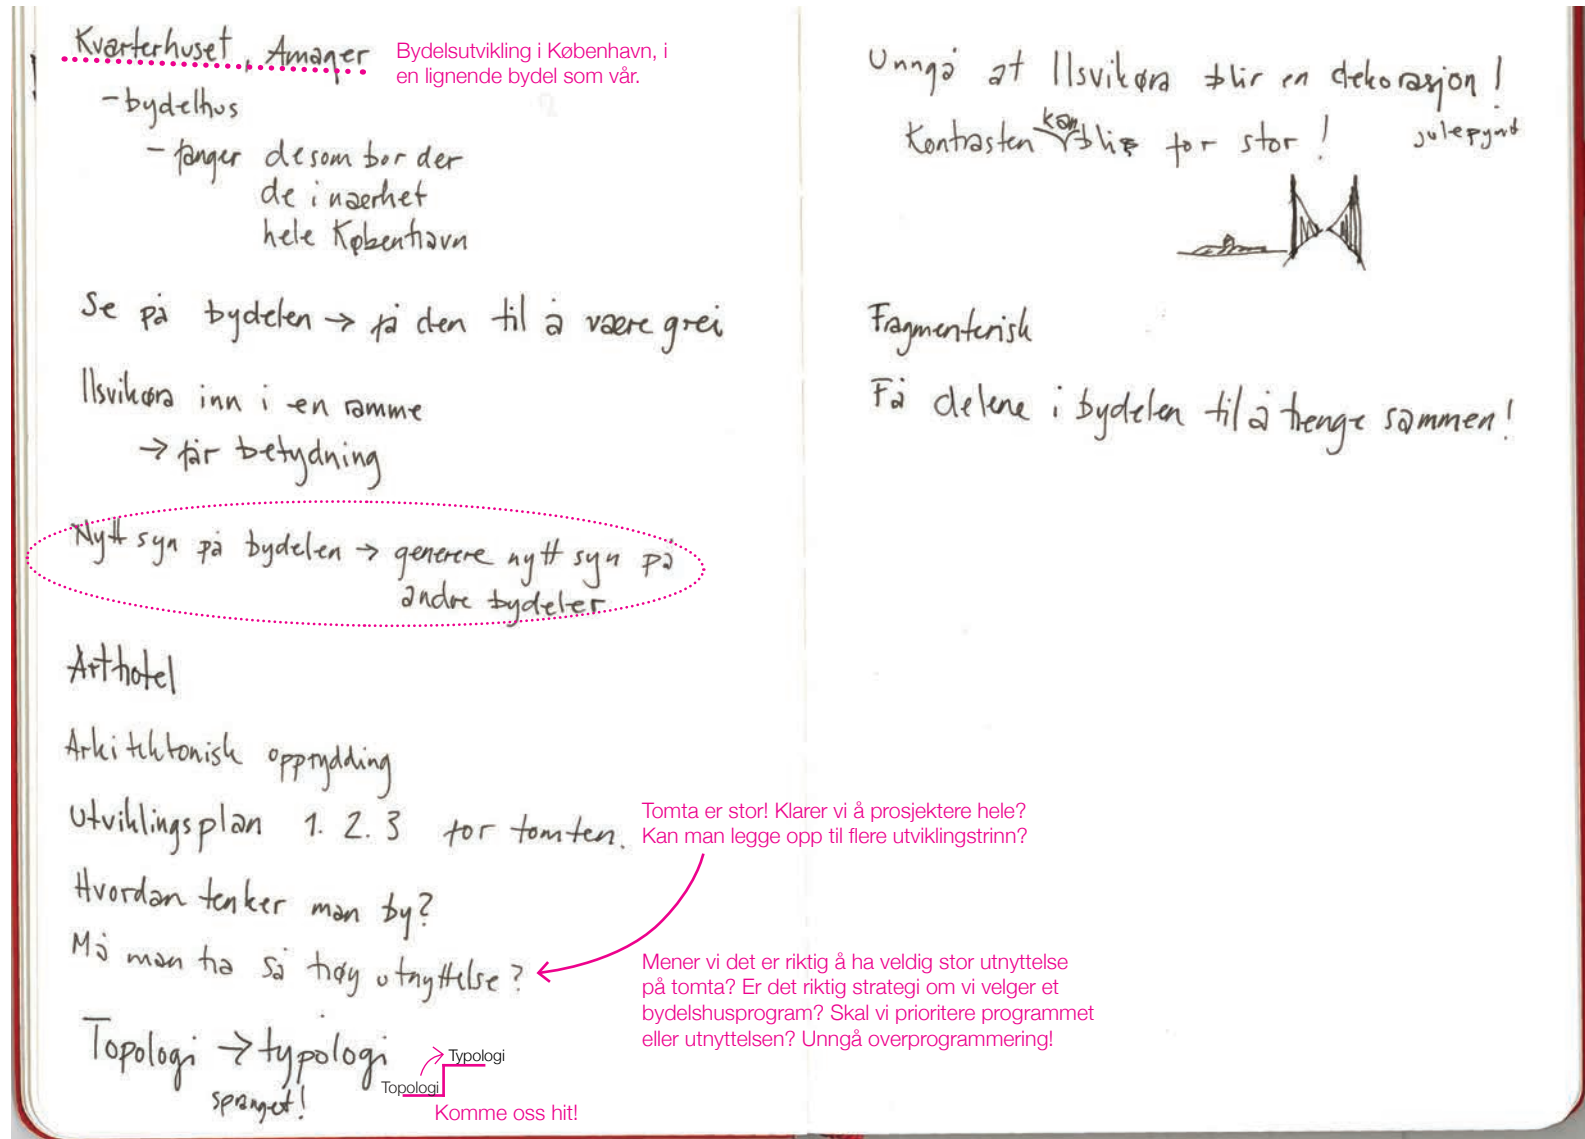 Kvarterhuset, Amager
Bydelsutvikling i København, i
en lignende bydel som vår.
- bydelhus
- fanger de som bor der
de i nærhet
hele København
Se på bydelen → få den til å være grei
Ilsvikøra inn i en ramme
→ får betydning
Nytt syn på bydelen → generere nytt syn på
andre bydeler
Arthotel
Arkitektonisk opprydding
Utviklingsplan 1. 2. 3 for tomten.
Tomta er stor! Klarer vi å prosjektere hele?
Kan man legge opp til flere utviklingstrinn?
Hvordan tenker man by?
Må man ha så høy utnyttelse?
Mener vi det er riktig å ha veldig stor utnyttelse
på tomta? Er det riktig strategi om vi velger et
bydelshusprogram? Skal vi prioritere programmet
eller utnyttelsen? Unngå overprogrammering!
Topologi → typologi
spranget!
Typologi
Topologi
Komme oss hit!
Unngå at Ilsvikøra blir en dekorasjon!
julepynt
Kontrasten kan bli for stor!
Fragmenterisk
Få delene i bydelen til å henge sammen!